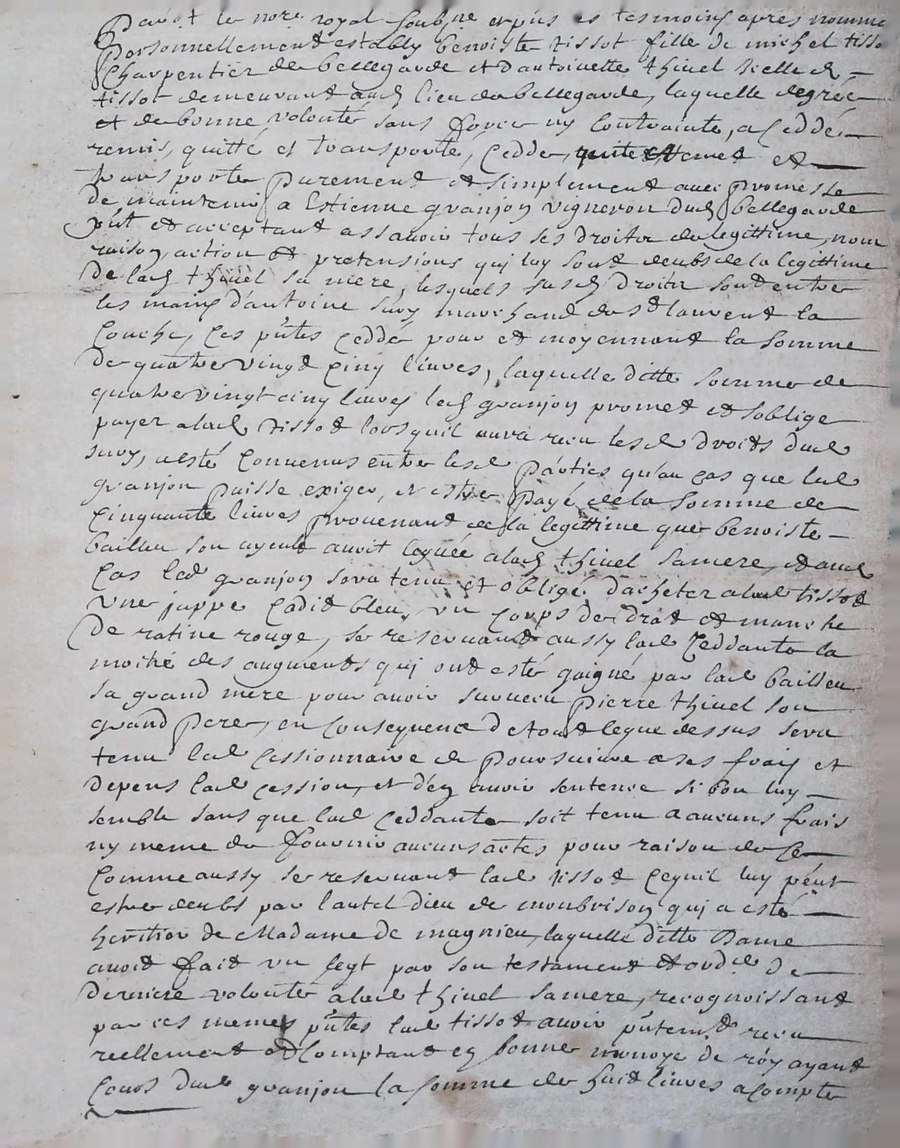 Pardt le nore royal soubne et pns es tesmoins apres nomme
Personnellement estably benoiste tissot fille de michel tisso
Charpentier de bellegarde et dantoinette thivel icelle d
tissot demeurant aud lieu de bellegarde, laquelle degrée
et de bonne volonte sans force ny Contrainte, a Ceddé
remis, quitté et transporté, Cedde, quite remet et
transporte purement et simplement avec promesse
de maintenir a Estienne granjon vigneron dud bellegarde
pnt et acceptant assavoir tous ses droits de legittime, nom
raison, action et pretensions qui luy sont deubs de la legittime
de lad thivel sa mere, lesquels susd droits sont entre
les mains d'antoine sury marchand de st laurent la
Couche, Ces pntes Cedde pour et moyennant la somme
de quatre vingt Cinq livres, laquelle ditte somme de
quatre vingt cinq livres led granjon promet et soblige
payer alad tissot lorsquil aura receu lesd droits dud
sury, a esté Convenus entre lesd parties qu'au cas que led
granjon puisse exiger, et estre payé de la somme de
Cinquante livres provenant de la legittime que benoiste
baillieu son ayeule avoit leguée alad thivel sa mere, et aud
Cas led granjon sera tenu et obligé d'acheter alad tissot
une juppe Cadit bleu, un Corps de drat et manche
de ratine rouge, se reservant aussy lad Ceddante la
moitié des augments qui ont esté gaigné par lad bailleu
sa grand mere pour avoir survecu pierre thivel son
grand pere, en Consequence de tout ceque dessus sera
tenu led Cessionnaire de poursuivre a ses frais et
depens lad cession, et d'en avoir sentence si bon luy
semble sans que lad Ceddante soit tenu a aucuns frais
ny meme de fournir aucuns actes pour raison de Ce
Comme aussy se reservant lad tissot Cequil luy peut
estre deubs par lautel dieu de monbrison qui a esté
heritier de Madame de magnieu, laquelle ditte Dame
avoit fait un legt par son testament et ordce de
derniere volonte alad thivel sa mere, recognoissant
par ces memes pntes lad tissot avoir pntemt receu
reellement et Comptant en bonne monoye de roy ayant
Cours dud granjon la somme de huit livres acompte